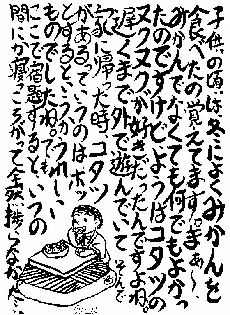 子供の頃は冬によくみかんを
食べたの覚えてます。まぁ〜、
みかんでなくても何でもよかっ
たのですけど、ようはコタツの
ヌクヌクが好きだったんですよね。
遅くまで外で遊んでいて そんで
家に帰った時、コタツ
があるっていうのはホッ
とするというかうれしい
ものでしたね。でも、
ここで宿題するといつの
間にか寝っころがって全然捗らなかった…